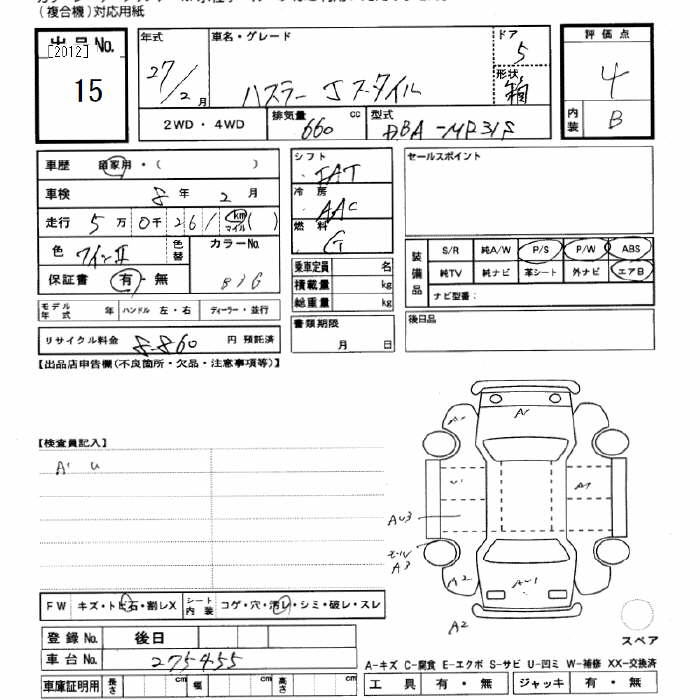 (複合機)対応用紙
出品No.
[2012]
15
年式
27/2 月
車名・グレード
ハスラー Jスタイル
ドア
5
形状
箱
評価点
4
内装
B
2WD・4WD
排気量 660 cc
型式 DBA-MR31S
車歴 自家用・( )
車検 8 年 2 月
走行 5万0千261 km マイル ( )
色 ワインⅡ
色替
カラーNo.
保証書 有・無
モデル年式 年 ハンドル 左・右 ディーラー・並行
リサイクル料金 8860 円 預託済
シフト
IAT
冷房
AAC
燃料
G
乗車定員 名
積載量 kg
総重量 kg
書類期限
月 日
セールスポイント
装備品
S/R 純A/W P/S P/W ABS
純TV 純ナビ 革シート 外ナビ エアB
ナビ型番:
後日品
【出品店申告欄(不良箇所・欠品・注意事項等)】
【検査員記入】
A1 U
A1
U1
A1
AU3
A3
A2
AU1
A2
FW キズ・トビ石・割レX
シート内装 コゲ・穴・汚レ・シミ・破レ・スレ
登録No. 後日
車台No. 275455
車庫証明用 長さ cm 幅 cm 高さ cm
スペア
A-キズ C-腐食 E-エクボ S-サビ U-凹ミ W-補修 XX-交換済
工具 有・無 ジャッキ 有・無